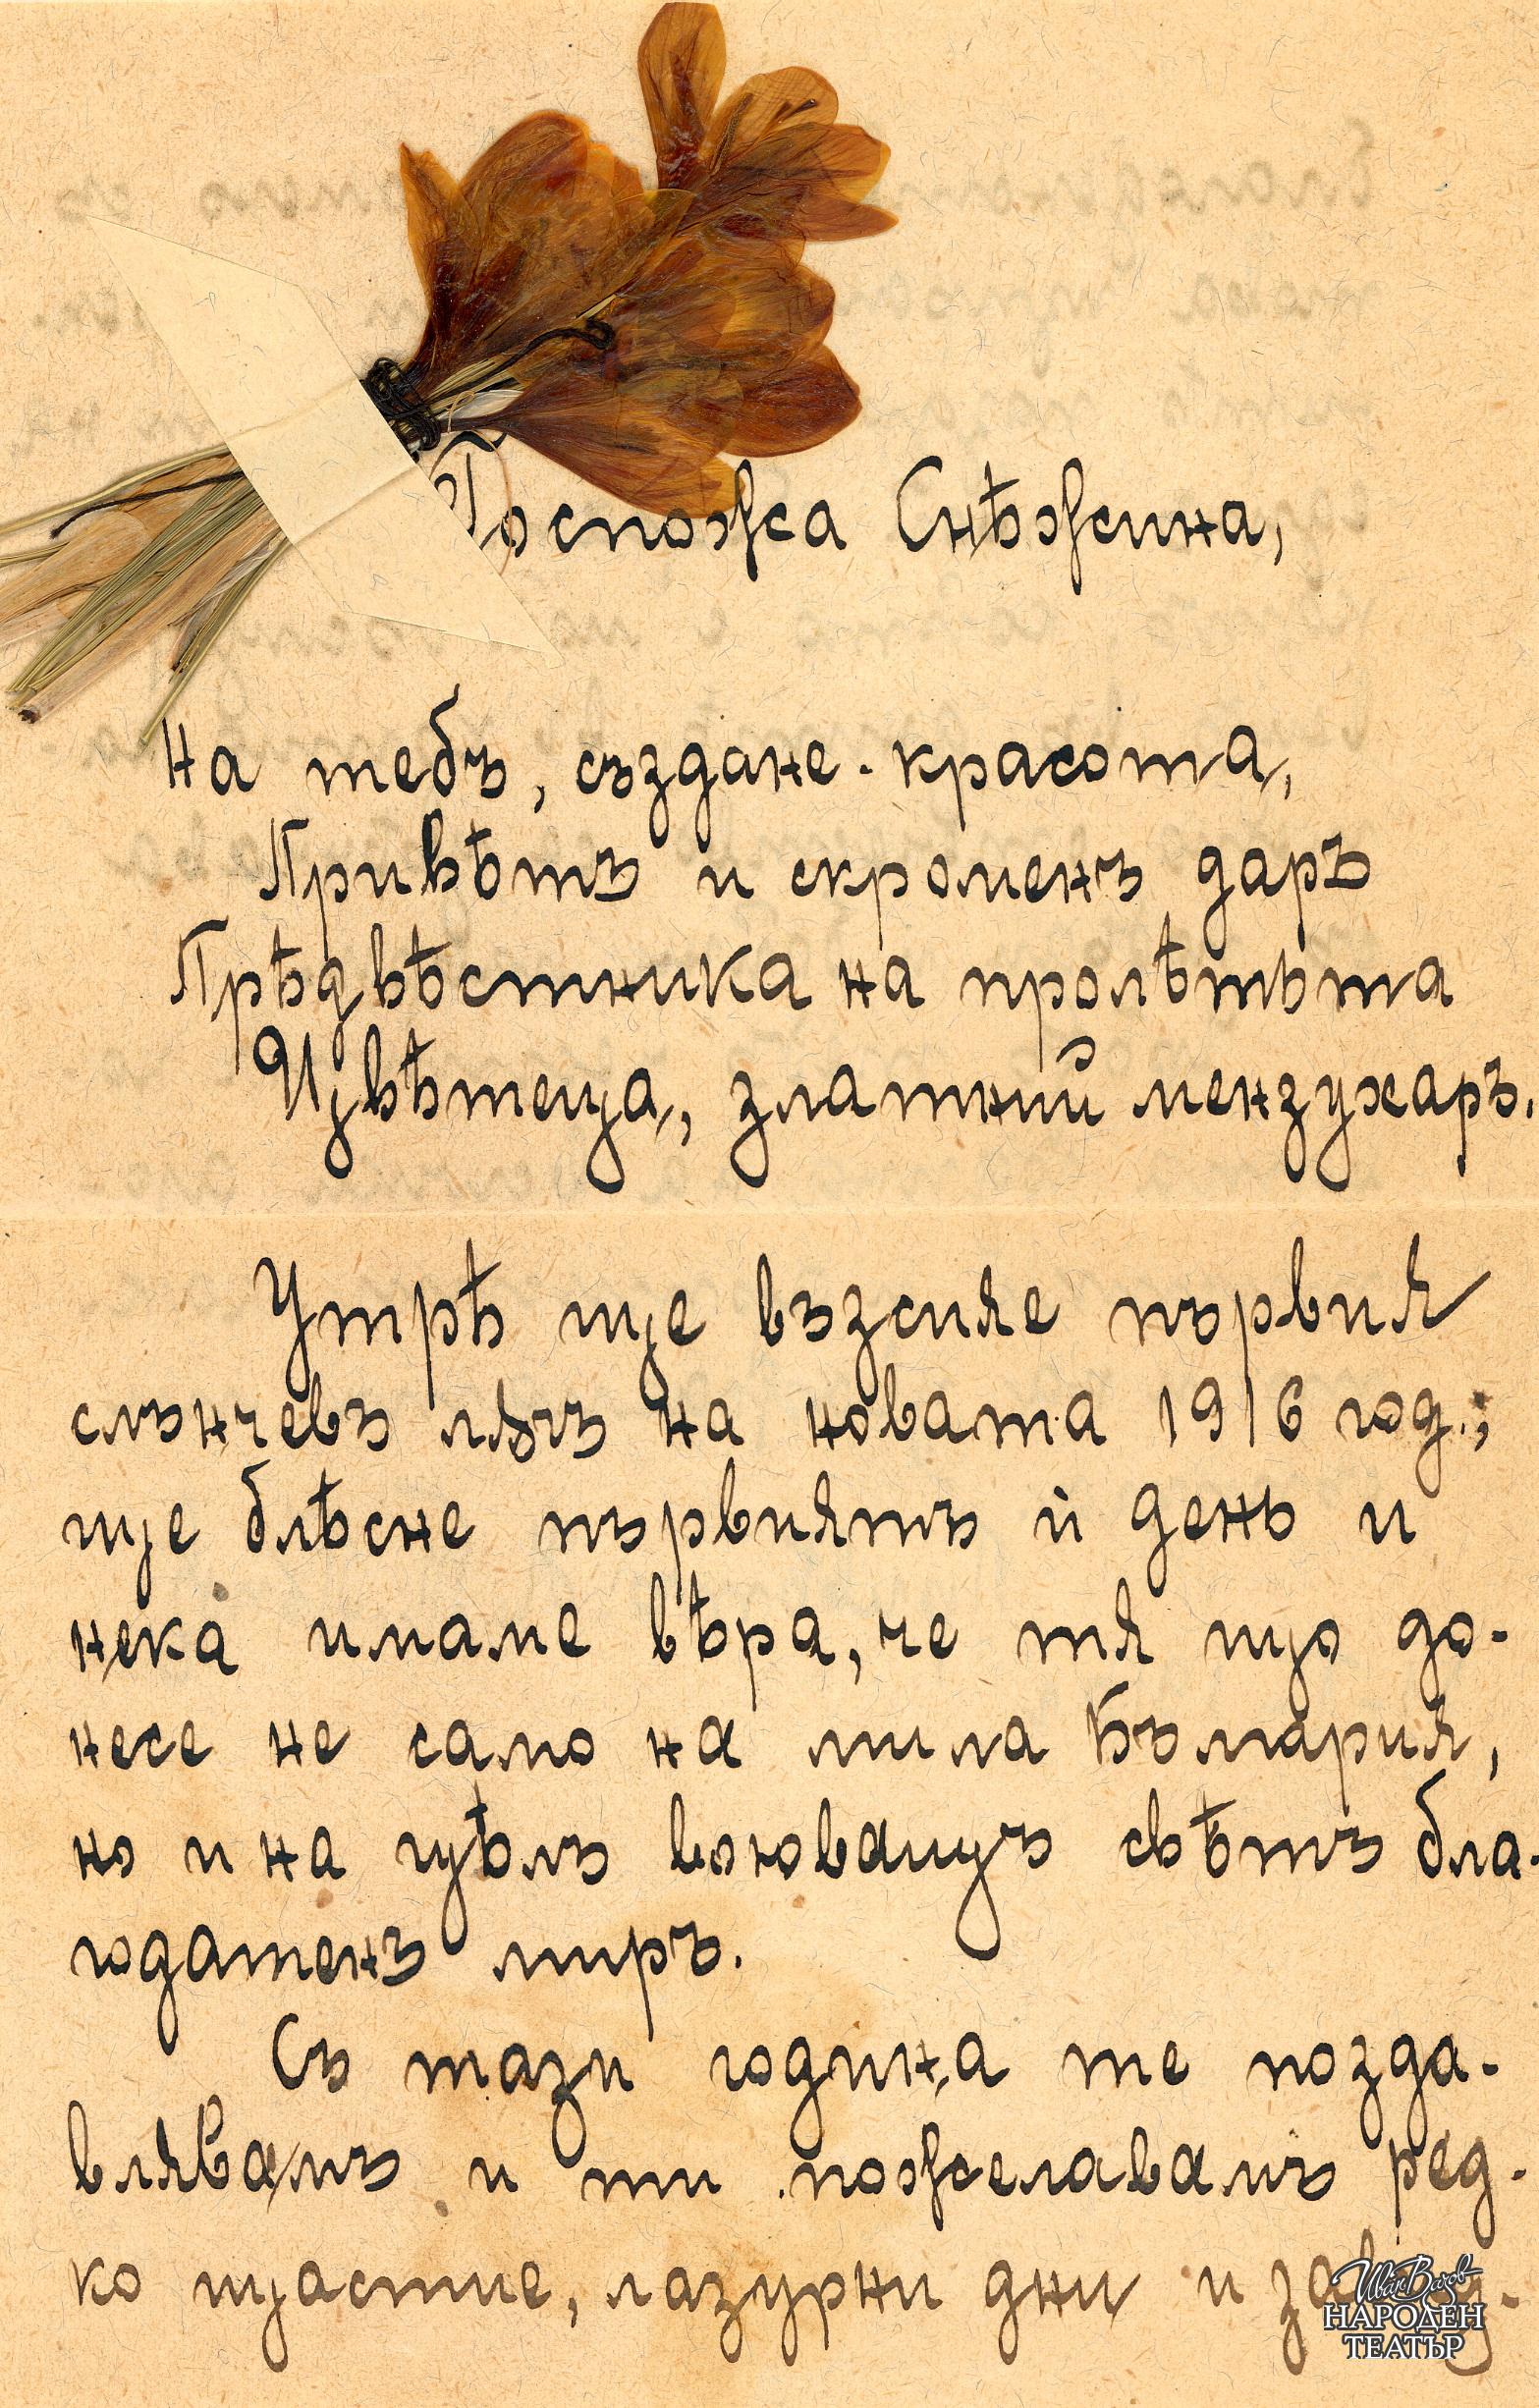 Госпожа Снѣжина,
На тебъ, създане - красота,
Привѣтъ и скроменъ даръ
Прѣдвѣстника на пролѣтьта
Изvѣтеца, златний мензухаръ.
Утрѣ ще възсияе първия
слънчевъ лѫчъ на новата 1916 год.;
ще блѣсне първиятъ ѝ день и
нека имаме вѣра, че тя що до-
несе не само на мила България,
но и на цѣлъ воюващъ свѣтъ бла-
годатенъ миръ.
Съ тази година те позда-
влявамъ и ти пожелавамъ ред-
ко щастие, лазурни дни и
Иван Вазов
НАРОДЕН
ТЕАТЪР